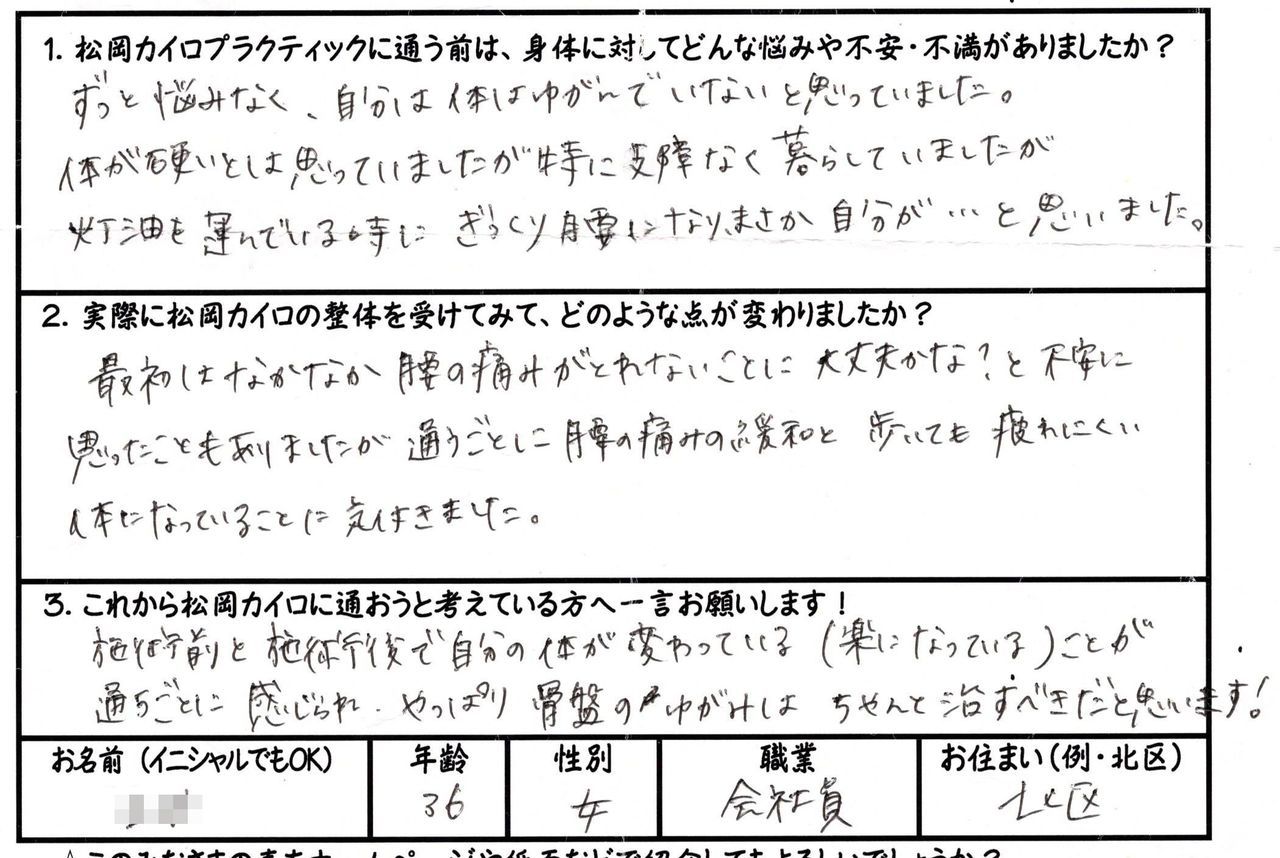 1. 松岡カイロプラクティックに通う前は、身体に対してどんな悩みや不安・不満がありましたか？
ずっと悩みなく、自分は体はゆがんでいないと思っていました。
体が硬いとは思っていましたが特に支障なく暮らしていましたが
灯油を運んでいる時にぎっくり腰になり、まさか自分が…と思いました。
2. 実際に松岡カイロの整体を受けてみて、どのような点が変わりましたか？
最初はなかなか腰の痛みがとれないことに大丈夫かな？と不安に
思ったこともありましたが通うごとに腰の痛みの緩和と歩いても疲れにくい
体になっていることに気付きました。
3. これから松岡カイロに通おうと考えている方へ一言お願いします！
施術前と施術後で自分の体が変わっている（楽になっている）ことが
通うごとに感じられ、やっぱり骨盤のゆがみはちゃんと治すべきだと思います！
お名前（イニシャルでもOK） 年齢 性別 職業 お住まい（例・北区）
36 女 会社員 北区